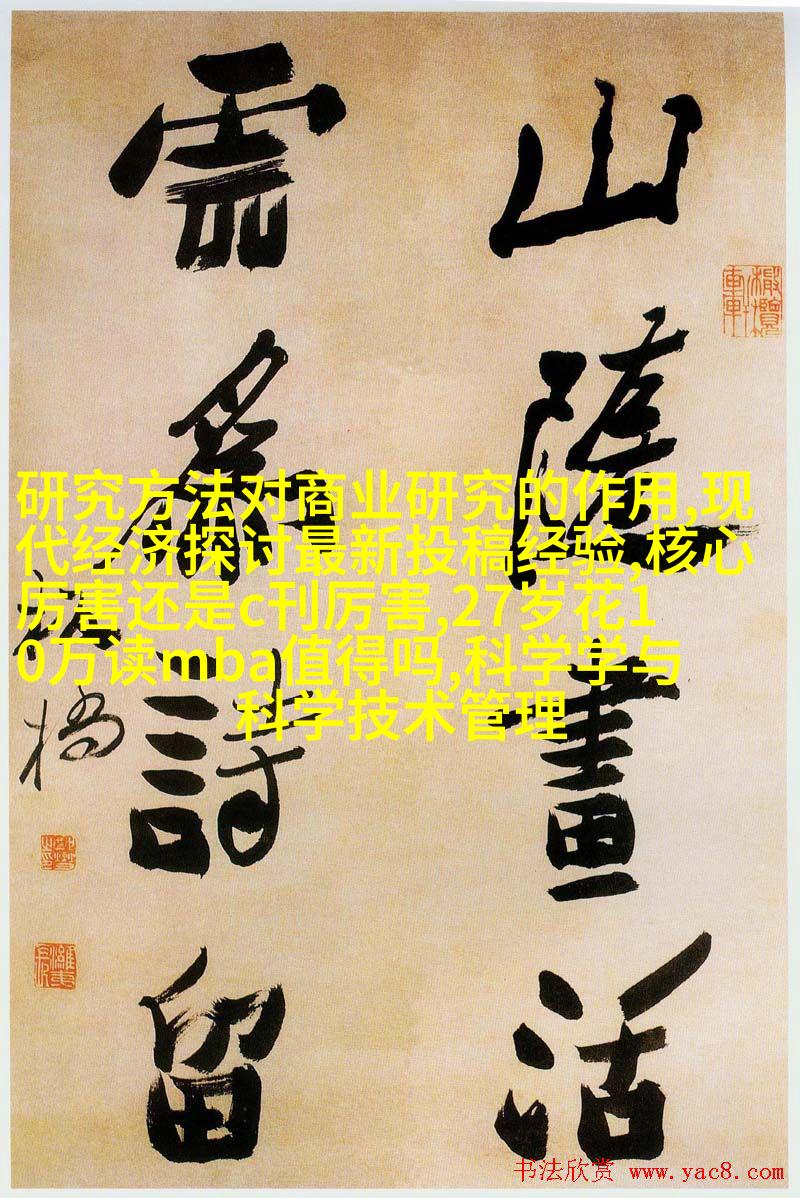 山隨畫活
雲爲詩留
板橋
研究方法对商业研究的作用,现
代经济探讨最新投稿经验,核心
厉害还是c刊厉害,27岁花1
0万读mba值得吗,科学学与
科学技术管理
书法欣赏 www.yac8.com